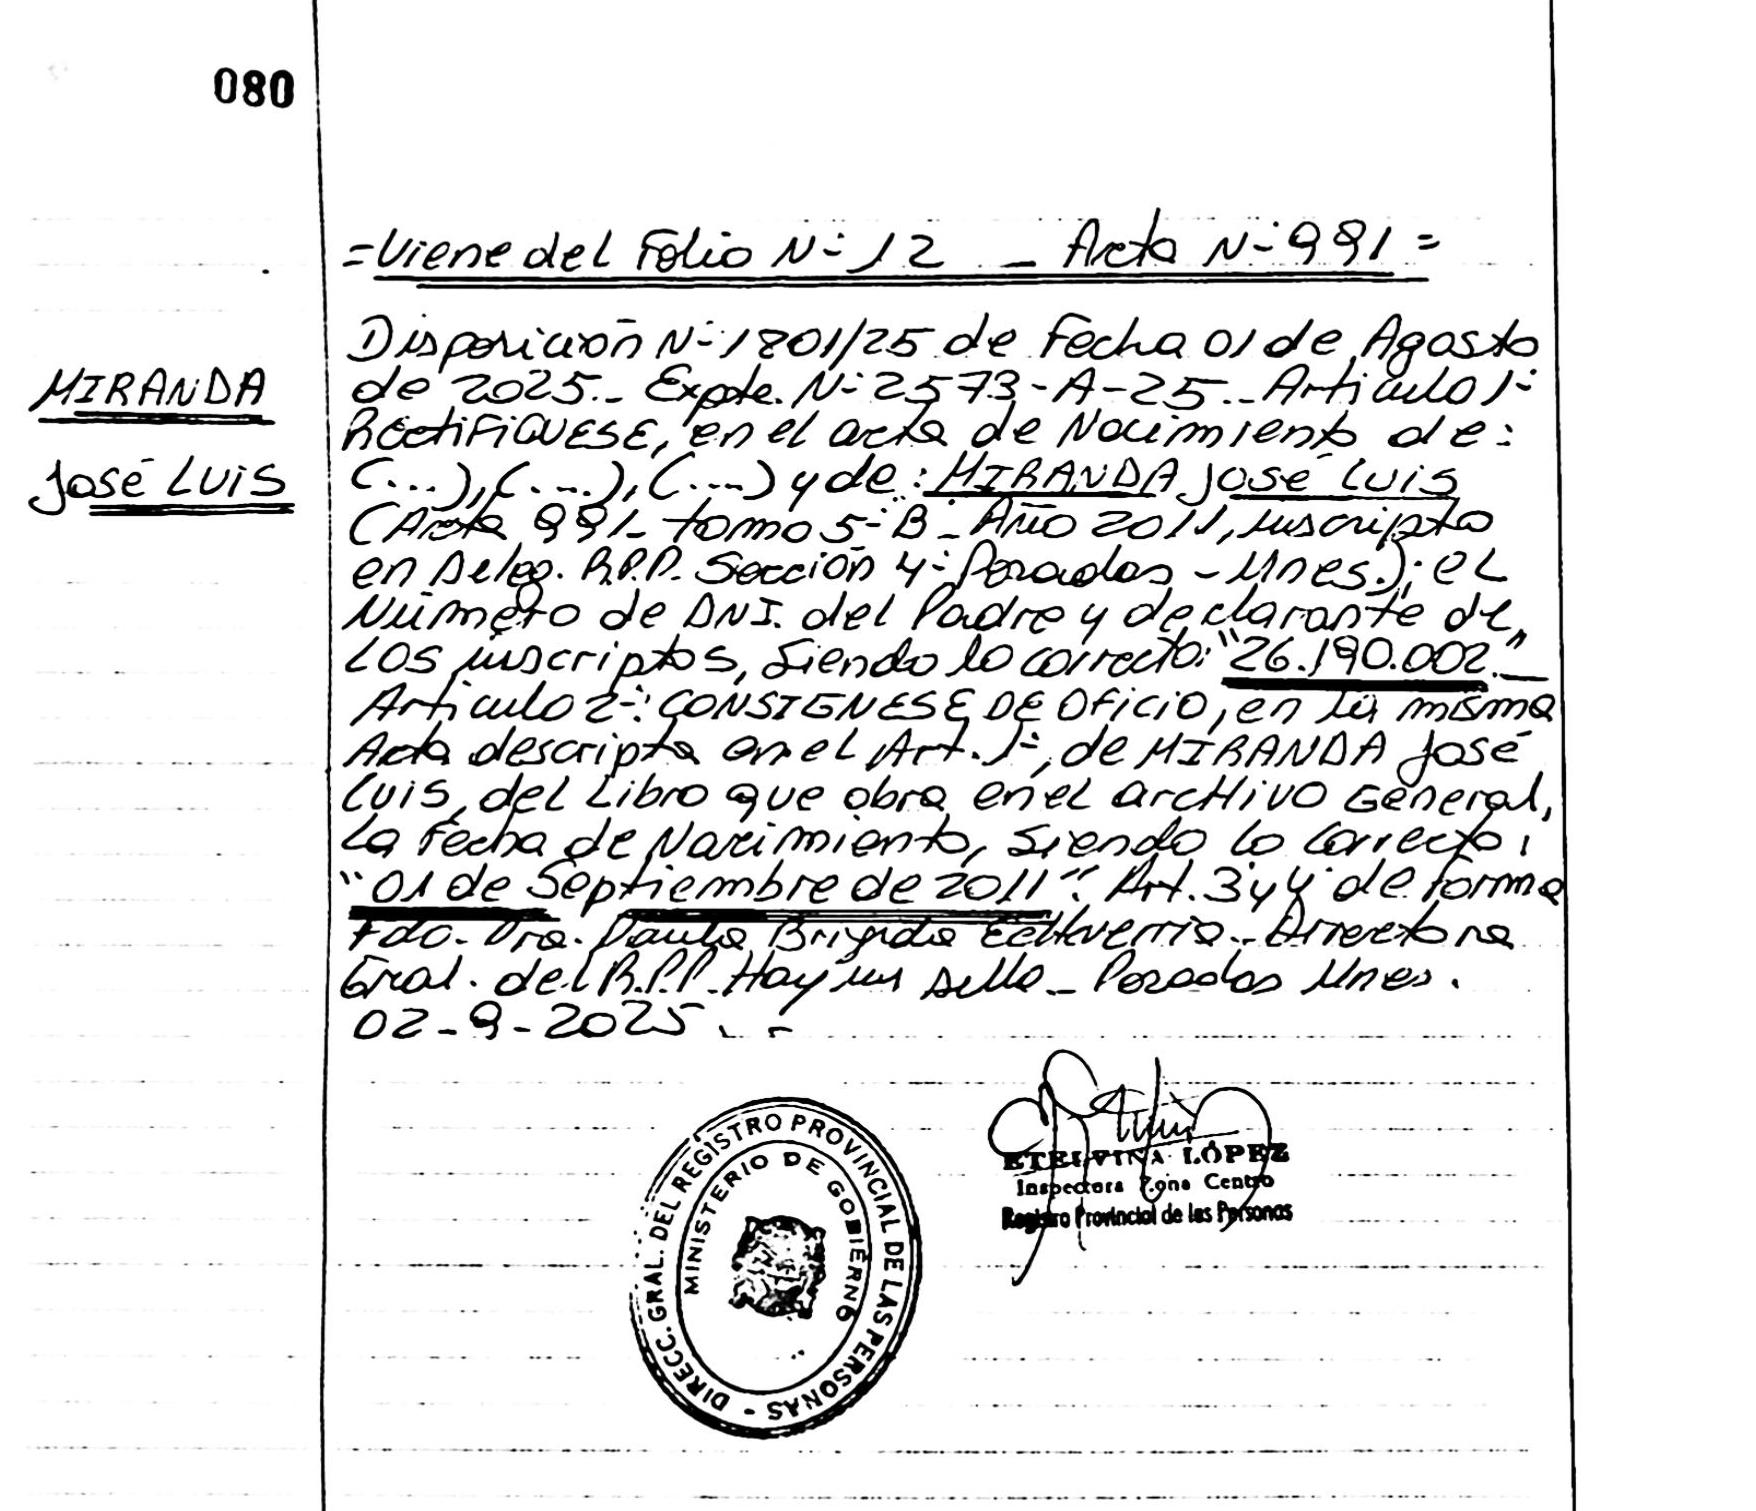 080
=Viene del Folio N- 12 - Acta N- 991=
MIRANDA
José Luis
Disposición N- 1801/25 de Fecha 01 de Agosto
de 2025.- Expte. N- 2573-A-25.- Articulo 1-
RectiFIQUESE, en el acta de Nacimiento de:
(...), (....), (....) y de: MIRANDA José Luis
(Acta 991- tomo 5- B- Año 2011, inscripta
en Deleg. R.P.P. Sección 4- Posadas - Mnes.); el
Número de DNI. del Padre y declarante de
Los inscriptos, siendo lo correcto: "26.190.002".-
Articulo 2-: CONSIGNESE DE OFicio, en la misma
Acta descripta en el Art. 1-, de MIRANDA José
Luis, del Libro que obra en el ArcHivo General,
La Fecha de Nacimiento, siendo lo correcto:
"01 de Septiembre de 2011". Art. 3 y 4 de forma
Fdo. Dra. Paula Brigida Echeverria.- Directora
Gral. del R.P.P. Hay un sello - Posadas Mnes.
02-9-2025.-
DIRECC. GRAL. DEL REGISTRO PROVINCIAL DE LAS PERSONAS -
MINISTERIO DE GOBIERNO
ETELVINA LÓPEZ
Inspectora Zona Centro
Registro Provincial de las Personas